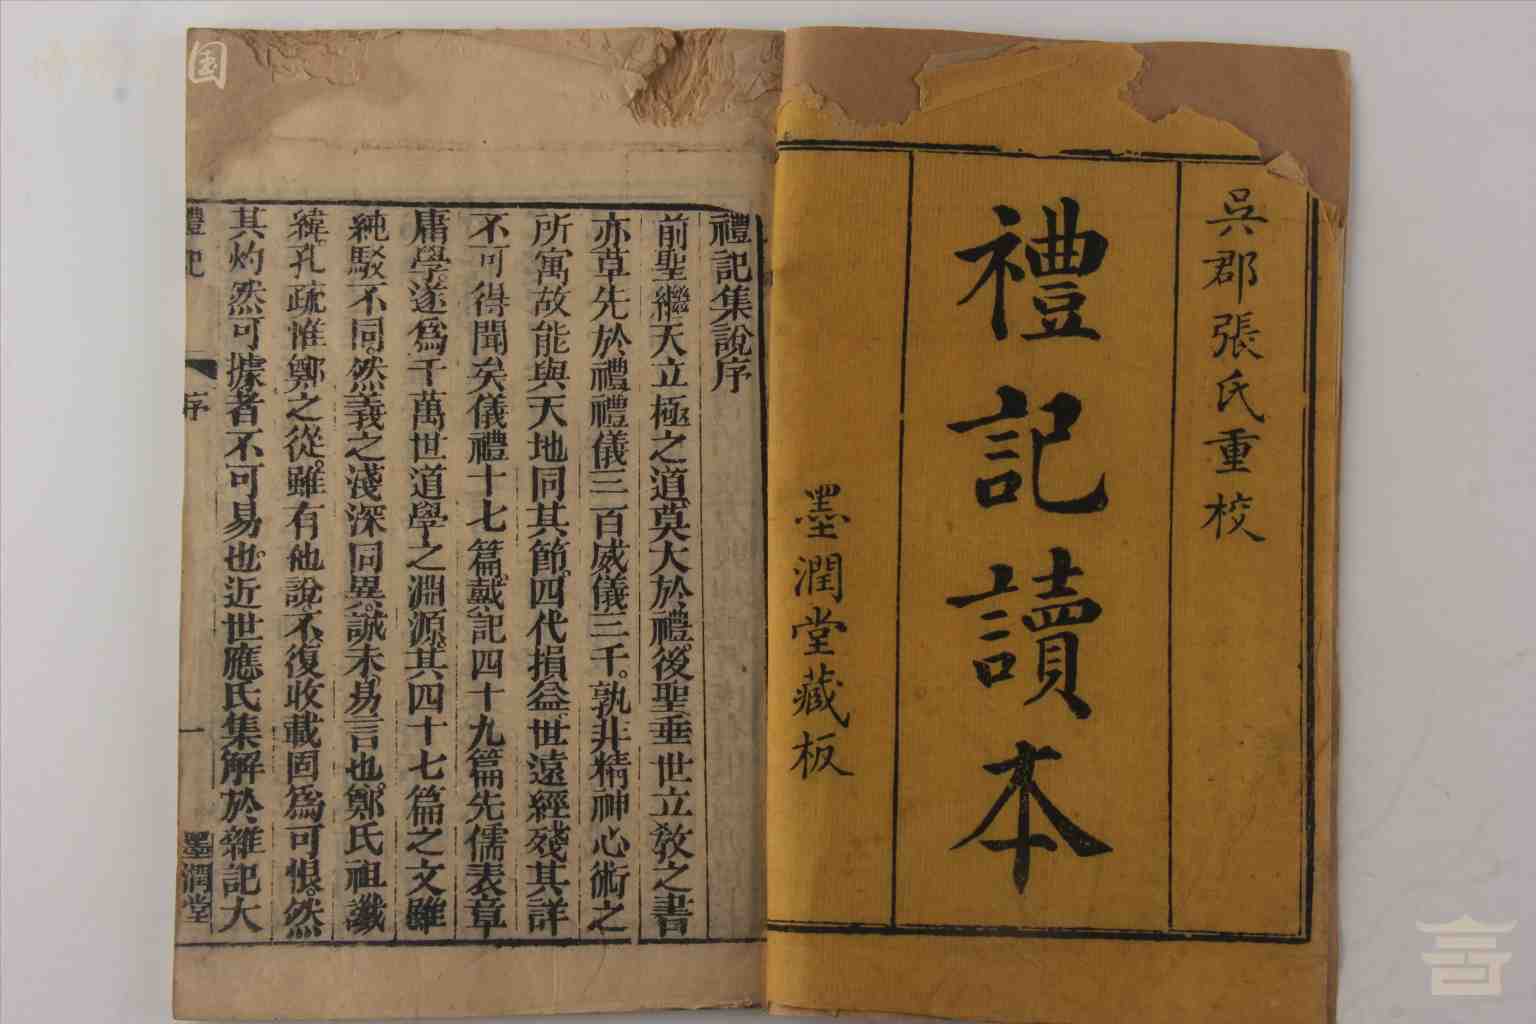 吳郡張氏重校
禮記讀本
墨潤堂藏板
禮記集說序
前聖繼天立極之道莫大於禮後聖垂世立教之書
亦莫先於禮禮儀三百威儀三千孰非精神心術之
所寓故能與天地同其節四代損益世遠經殘其詳
不可得聞矣儀禮十七篇戴記四十九篇先儒表章
庸學遂爲千萬世道學之淵源其四十七篇之文雖
純駁不同然義之淺深同異誠未易言也鄭氏祖讖
緯孔疏惟鄭之從雖有他說不復收載固爲可恨然
其灼然可據者不可易也近世應氏集解於雜記大
禮記
序
一
墨潤堂
国